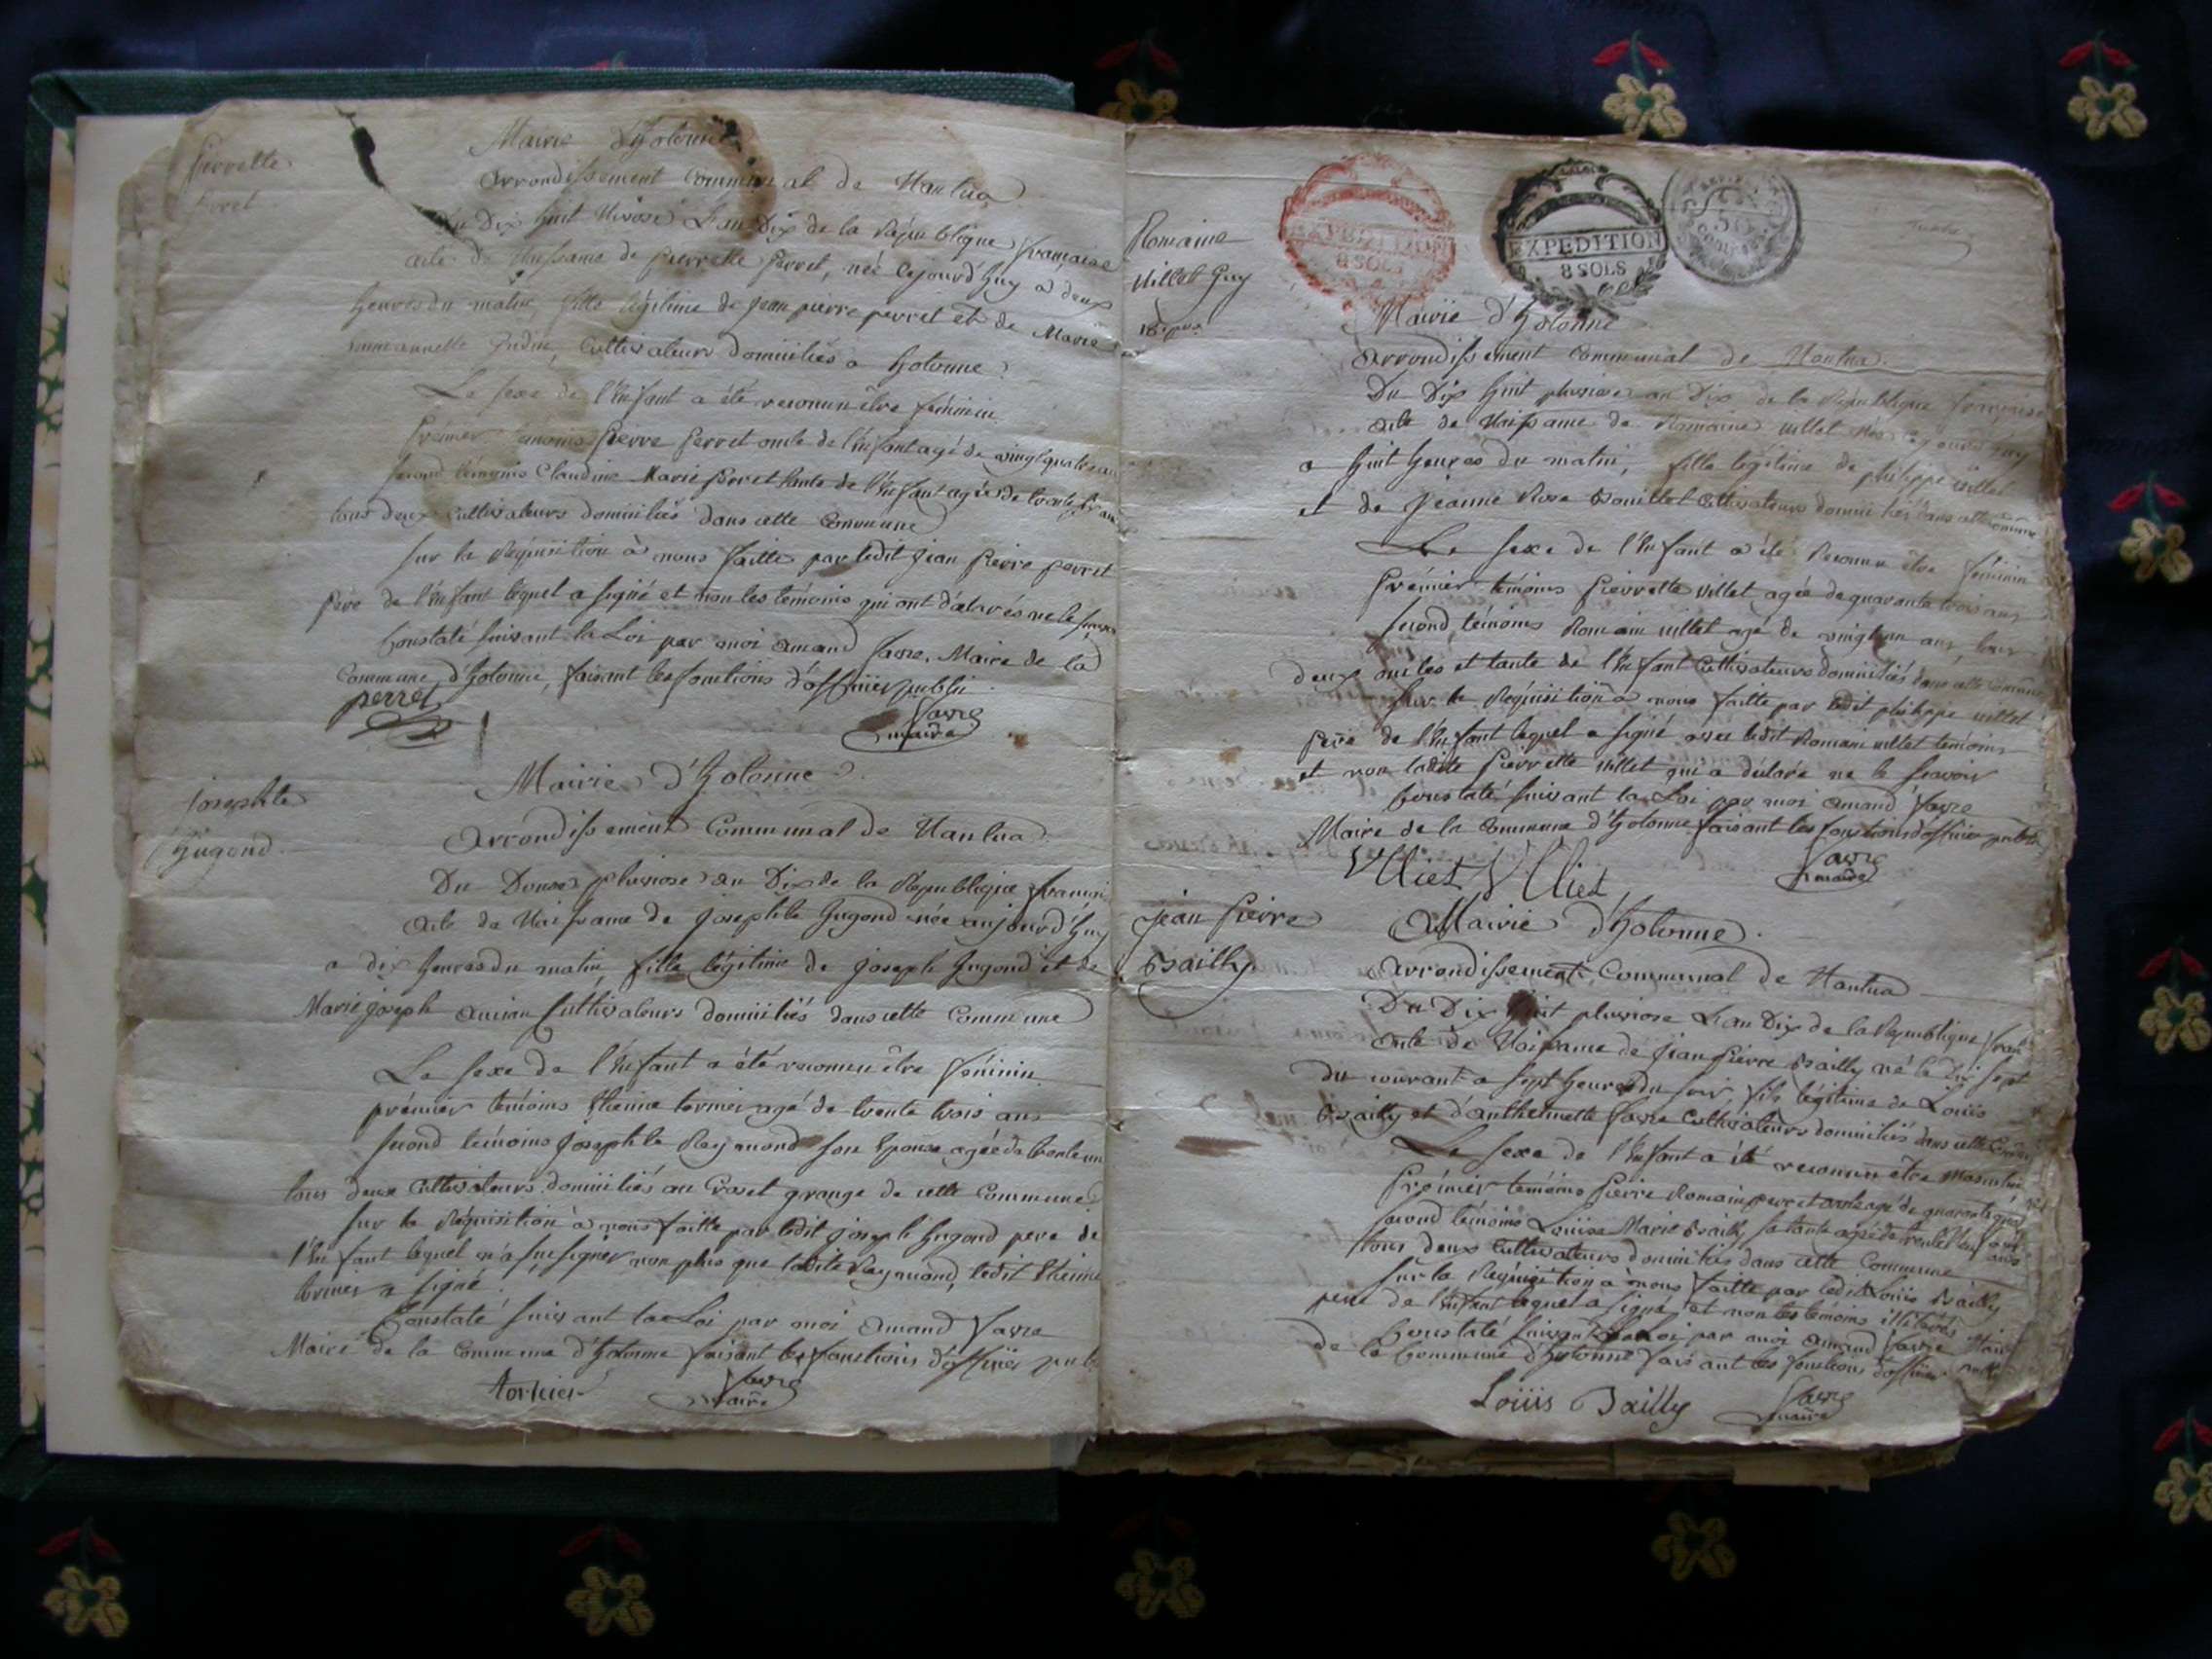 Pierrette
Perret
Mairie d'hotonne
Arrondissement Communal de Nantua
Du Dix huit Nivose L'an Dix de la République française
acte de Naissance de pierrette perret, née cejourd'huy a deux
heures du matin, fille légitime de jean pierre perret et de Marie
Cultivateurs domiciliés a hotonne
Le sexe de l'Enfant a été reconnu être féminin
premier temoins pierre perret oncle de l'Enfant agé de vingt quatre ans
second témoins Claudine Marie perret tante de l'Enfant agée de trente
tous deux Cultivateurs domiciliés dans cette Commune
sur la Requisition à nous faitte par ledit jean pierre perret
pere de l'Enfant lequel a signé et non les témoins qui ont déclarés ne le
Constaté suivant la Loi par moi amand favre, Maire de la
Commune d'hotonne, faisant les fonctions d'officier public
perret
favre
maire
josephte
hugond
Mairie d'hotonne
Arrondissement Communal de Nantua
Du Douze pluviose an Dix de la République
acte de Naissance de josephte hugond née aujourd'huy
a dix heures du matin, fille légitime de joseph hugond et de
Marie joseph Cultivateurs domiciliés dans cette Commune
Le sexe de l'Enfant a été reconnu être féminin
premier temoins Etienne termier agé de trente trois ans
second témoins josephte Raymond son Epouse agée de trente un
tous deux Cultivateurs domiciliés au grange de cette Commune
sur la Réquisition à nous faitte par ledit joseph hugond pere de
l'Enfant lequel n'a su signer non plus que ladite Raymond, ledit Etienne
termier a signé
Constaté suivant la Loi par moi amand favre
Maire de la Commune d'hotonne faisant les fonctions d'officier
favre
maire
EXPEDITION
8 SOLS
EXPEDITION
8 SOLS
50
Romaine
Villet
Mairie d'hotonne
Arrondissement Communal de Nantua
Du Dix huit pluviose an Dix de la République française
acte de Naissance de Romaine villet née cejourd'huy
a huit heures du matin, fille légitime de philippe villet
et de jeanne Rose Cultivateurs domiciliés dans cette commune
Le sexe de l'Enfant a été Reconnu être féminin
premier témoins pierrette villet agée de quarante trois ans
second témoins Romain villet agé de vingt un ans, tous
deux oncles et tante de l'Enfant Cultivateurs domiciliés dans cette commune
sur la Réquisition à nous faitte par ledit philippe villet
pere de l'Enfant lequel a signé avec ledit Romain villet temoins
et non ladite pierrette villet qui a déclaré ne le scavoir
Constaté suivant la Loi par moi amand favre
Maire de la Commune d'hotonne faisant les fonctions d'officier public
favre
maire
jean pierre
Bailly
Mairie d'hotonne
arrondissement Communal de Nantua
Du Dix huit pluviose L'an Dix de la Republique
acte de Naissance de jean pierre Bailly né le Dix sept
du courant a sept heures du soir, fils légitime de Louis
Bailly et d'anthelmette favre Cultivateurs domiciliés dans cette
Le sexe de l'Enfant a été reconnu être masculin
premier temoins pierre Romain perret agé de quarante
second témoins Louise Marie Bailly sa tante agée de
tous deux Cultivateurs domiciliés dans cette Commune
sur la Requisition a nous faitte par ledit Louis Bailly
pere de l'Enfant lequel a signé et non les témoins illiterés
Constaté suivant la Loi par moi amand favre Maire
de la Commune d'hotonne faisant les fonctions d'officier
Loüis Bailly
favre
maire